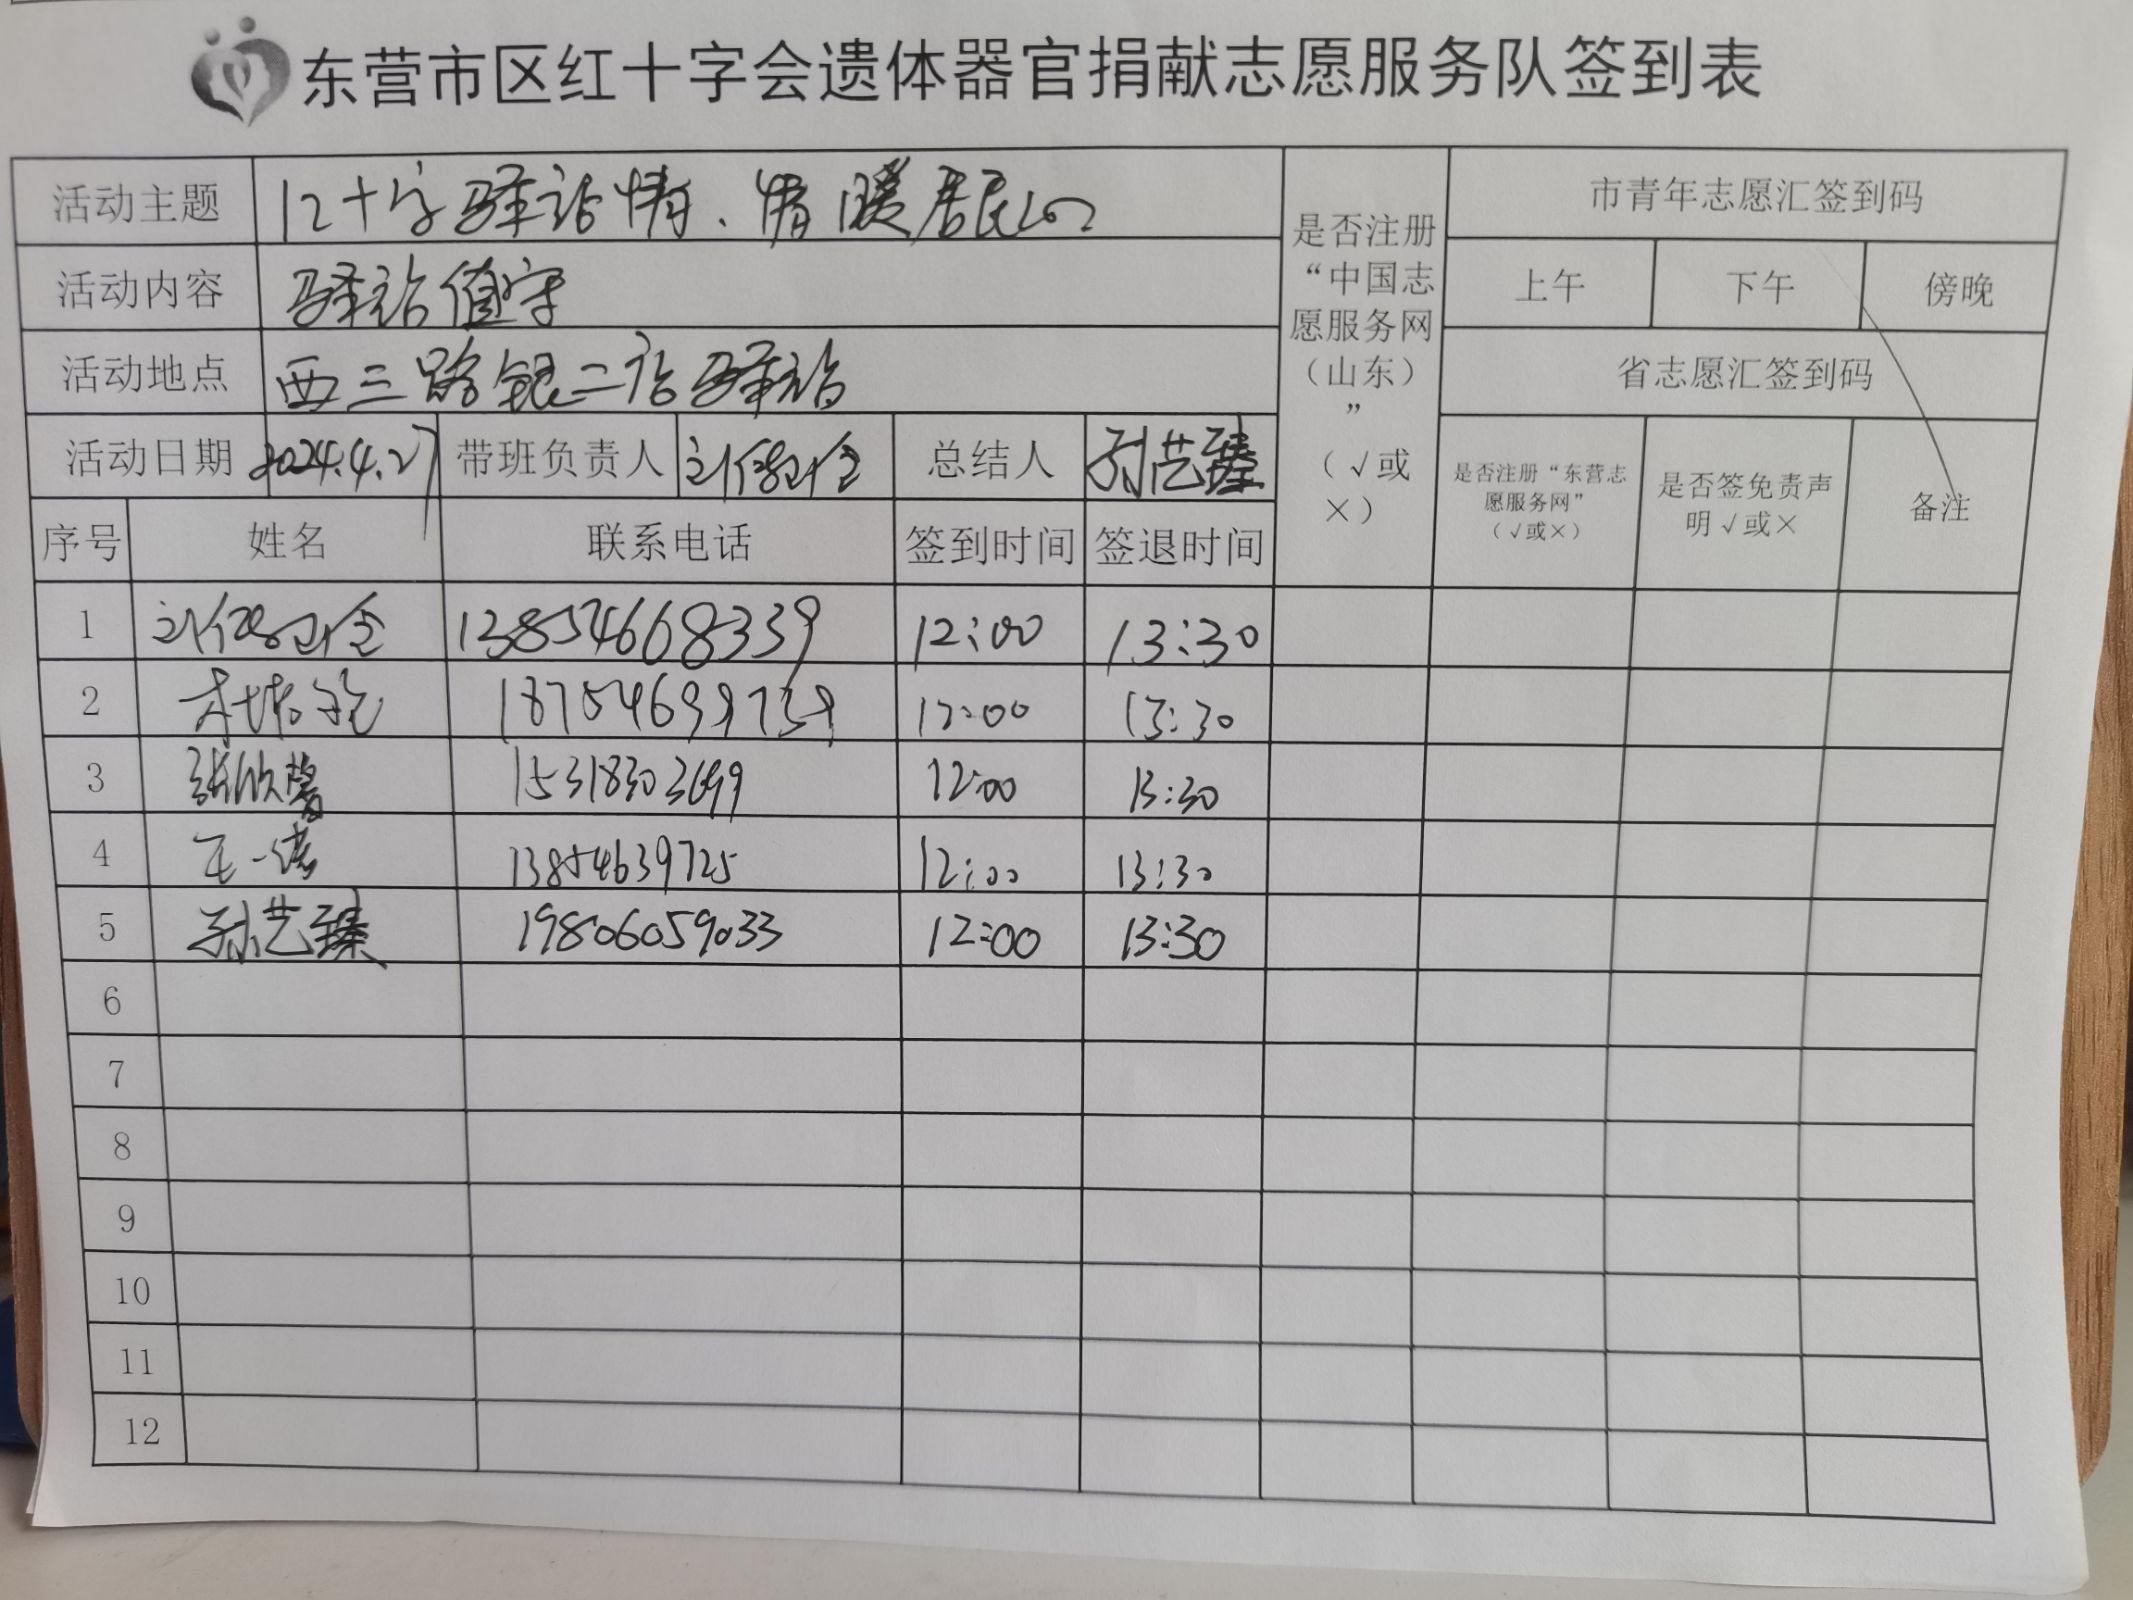 东营市区红十字会遗体器官捐献志愿服务队签到表
活动主题 红十字驿站情、情暖居民心
活动内容 驿站值守
活动地点 西三路银二站驿站
活动日期 2024.4.27 带班负责人 总结人 孙艺臻
是否注册
“中国志
愿服务网
（山东）
”
（√或
×）
市青年志愿汇签到码
上午 下午 傍晚
省志愿汇签到码
是否注册“东营志
愿服务网”
（√或×）
是否签免责声
明√或×
备注
序号 姓名 联系电话 签到时间 签退时间
1 13854668339 12:00 13:30
2 18754699739 12:00 13:30
3 张欣馨 15318303699 12:00 13:30
4 王一诺 13854639725 12:00 13:30
5 孙艺臻 19806059033 12:00 13:30
6
7
8
9
10
11
12